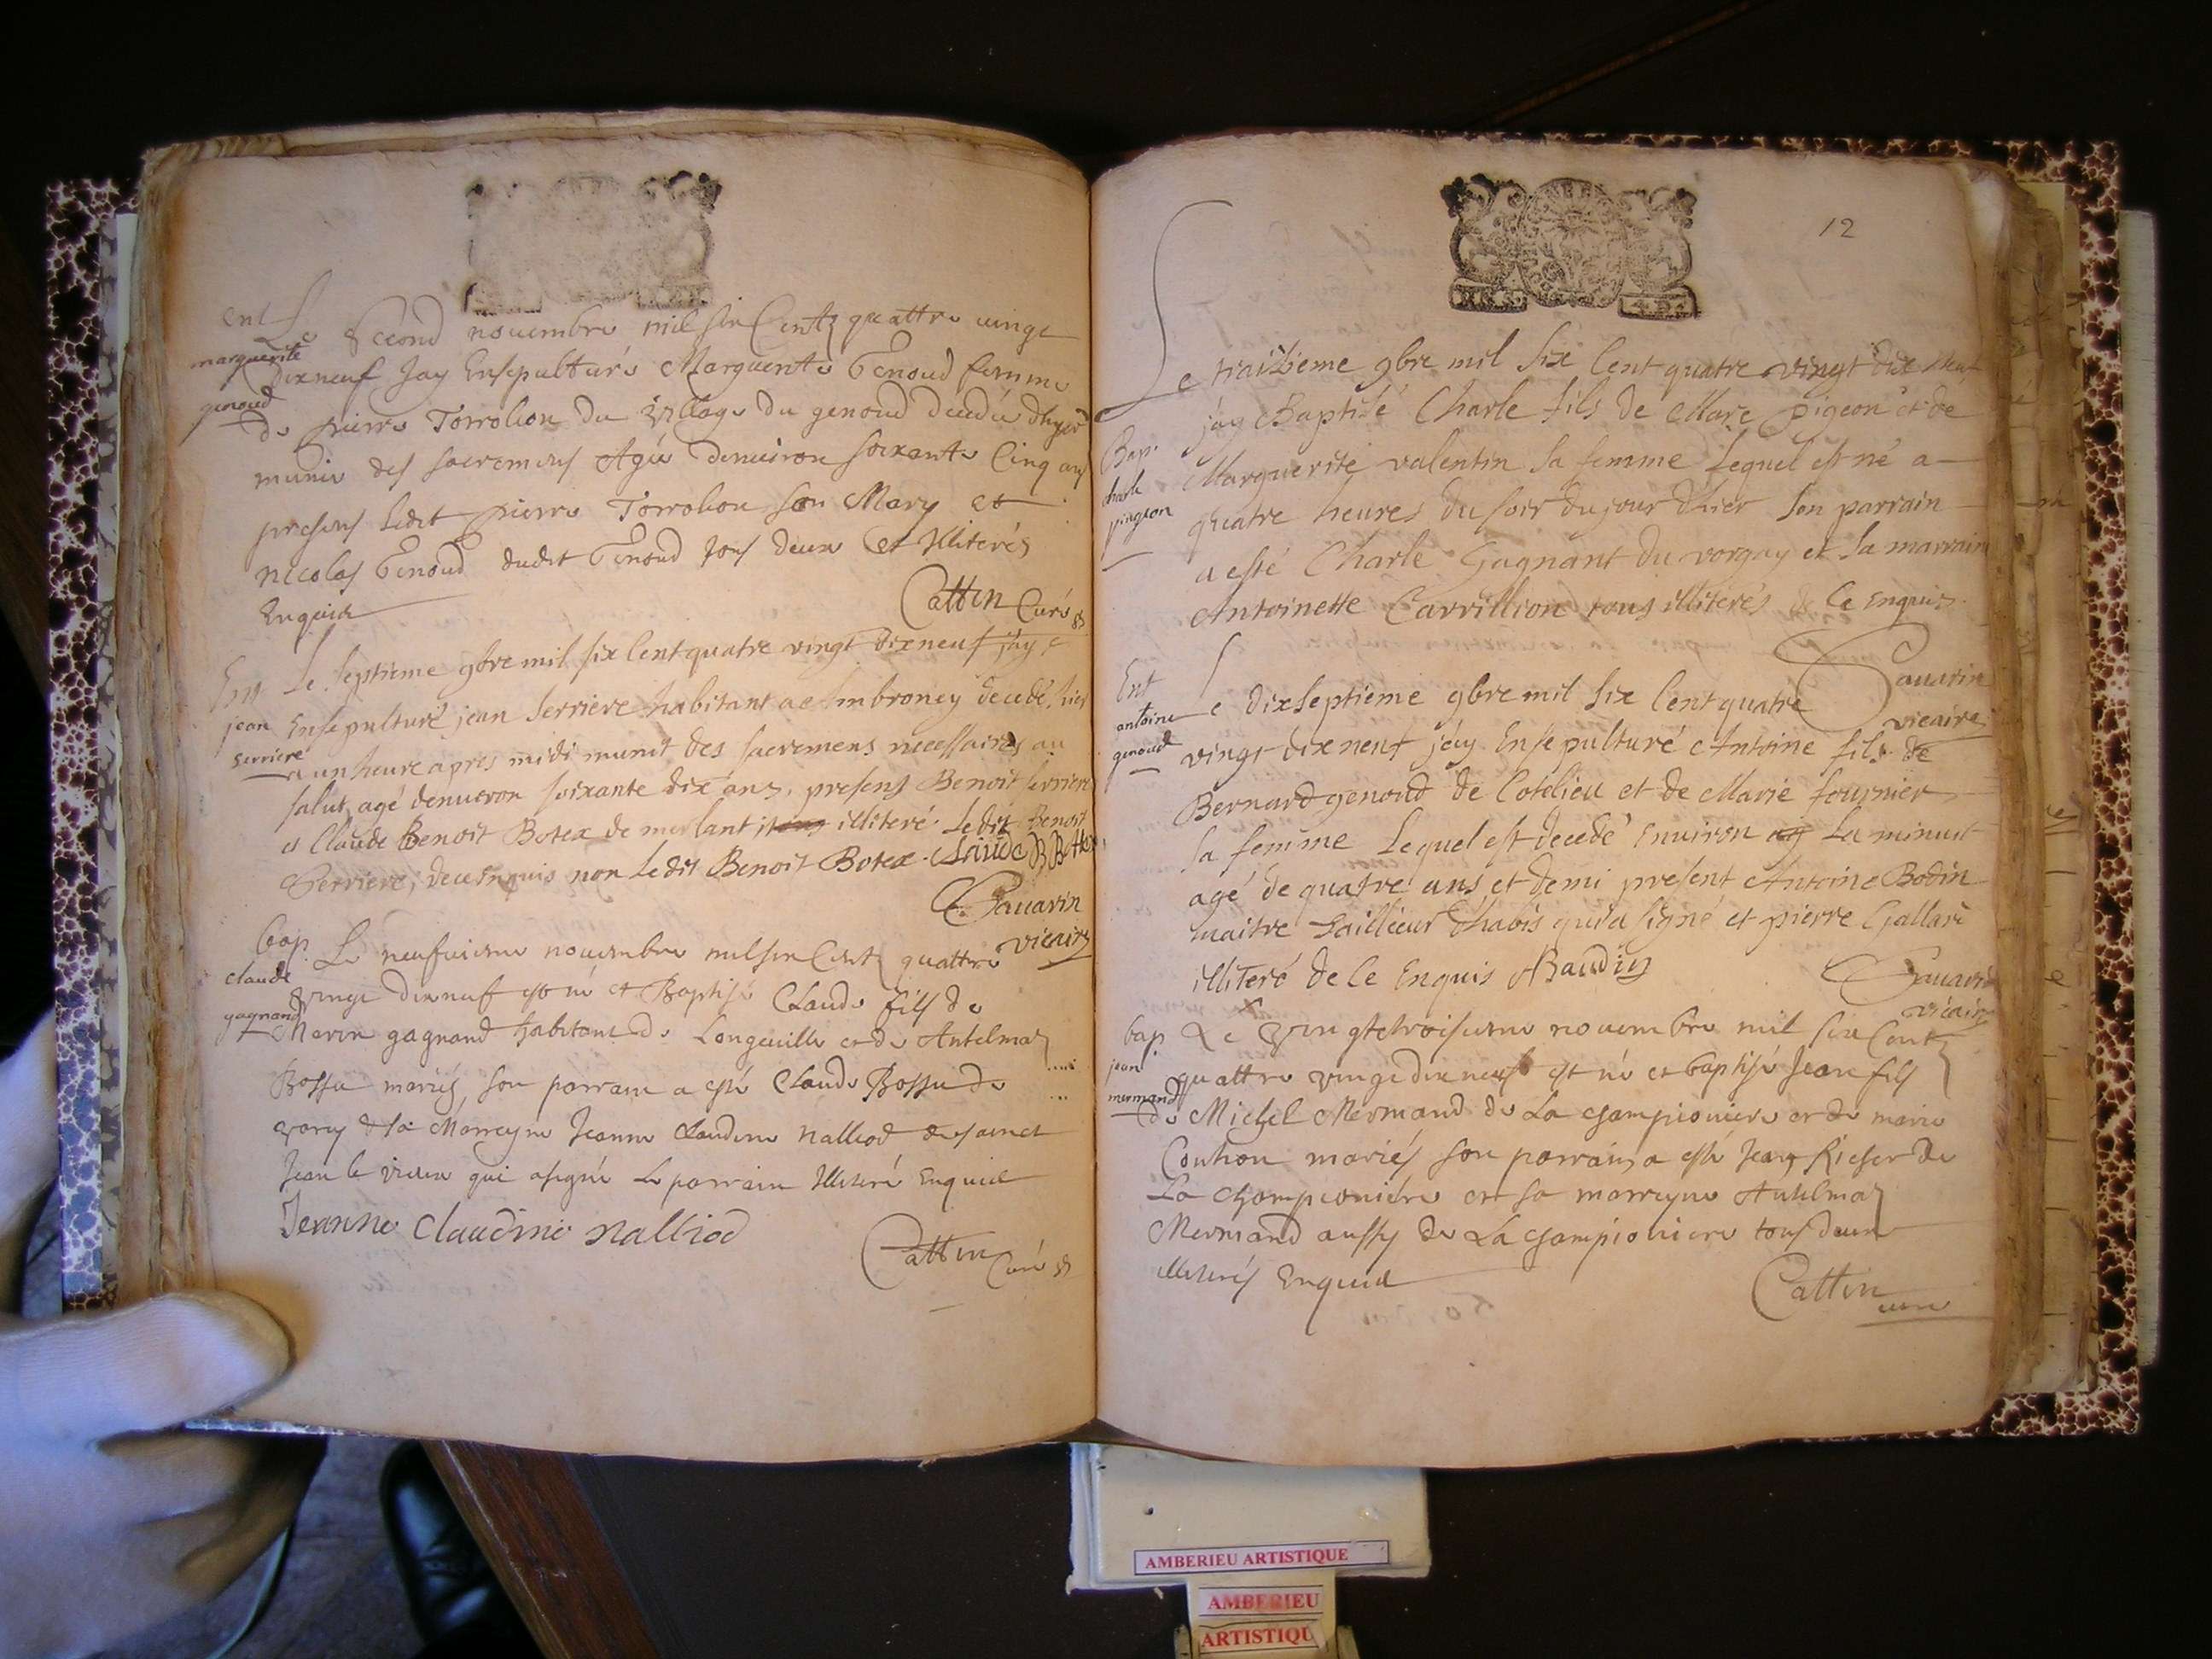 ent
marguerite
genoud
Le second novembre mil six Centz quattre vingt
dixneuf Jay Ensepulturé Marguerite Genoud femme
de pierre Torrolion du village du genoud décédée dhyer
munie des sacremens Agée denuiron soixante Cinq ans
presens ledit pierre Torrolion son Mary et
nicolas Genoud dudit Genoud tous deux Illiterés
Enquis
Cattin Curé
Ent
jean
serriere
Le septieme 9bre mil six Cent quatre vingt dixneuf j'ay
Ensepulturé jean Serriere habitant a Ambroney decedé hier
a un heure apres midi munit des sacremens necessaires au
salut agé denuiron soixante dix ans. presens Benoit serriere
et Claude Benoit Botex de merlant illiteré ledit Benoit
Serriere, de ce Enquis non ledit Benoit Botex. Claude B Botex
Sauarin
vicaire
bap.
claude
gagnand
Le neufuieme nouembre mil six Centz quattre
vingt dixneuf est né et Baptisé Claude fils de
Marin gagnand habitant de Longeuille et de Antelmaz
Bossu mariés, son parrain a esté Claude Bossu de
vorey & sa Marreyne Jeanne Claudine nalliod de sainct
Jean le vieux qui a signé Le parrain Illiteré Enquis
Jeanne Claudine nalliod
Cattin Curé
12
Bap.
charle
pingeon
Le traizieme 9bre mil Six Cent quatre vingt dix neuf
j'ay Baptisé Charle fils de Marc pigeon et de
Marguerite valentin sa femme Lequel est né a
quatre heures du soir du jour d'hier Son parrain
a esté Charle Gagnant du vorgay et sa marraine
Antoinette Carrillion tous illiterés de Ce Enquis.
Sauarin
vicaire
Ent
antoine
genoud
Le dixseptieme 9bre mil Six Cent quatre
vingt dixneuf j'ay Ensepulturé Antoine fils de
Bernard genoud de Cotelieu et de Marie fournier
sa femme Lequel est decedé Enuiron La minuit
agé de quatre ans et demi present Antoine Bodin
maitre tailleur d'habis qui a signé et pierre Gallare
illiteré de Ce Enquis ABaudin
Sauarin
vicaire
bap
jean
mermand
Le vingtetroisieme nouembre mil six Centz
quattre vingt dixneuf est né et baptisé Jean fils
de Michel Mermand de La championiere et de marie
Couhon mariés son parrain a esté Jean Riefer de
La championiére et sa marreyne Antelmaz
Mermand aussy de La championiere tous deux
illiterés Enquis
Cattin
curé
AMBERIEU ARTISTIQUE
AMBERIEU
ARTISTIQU